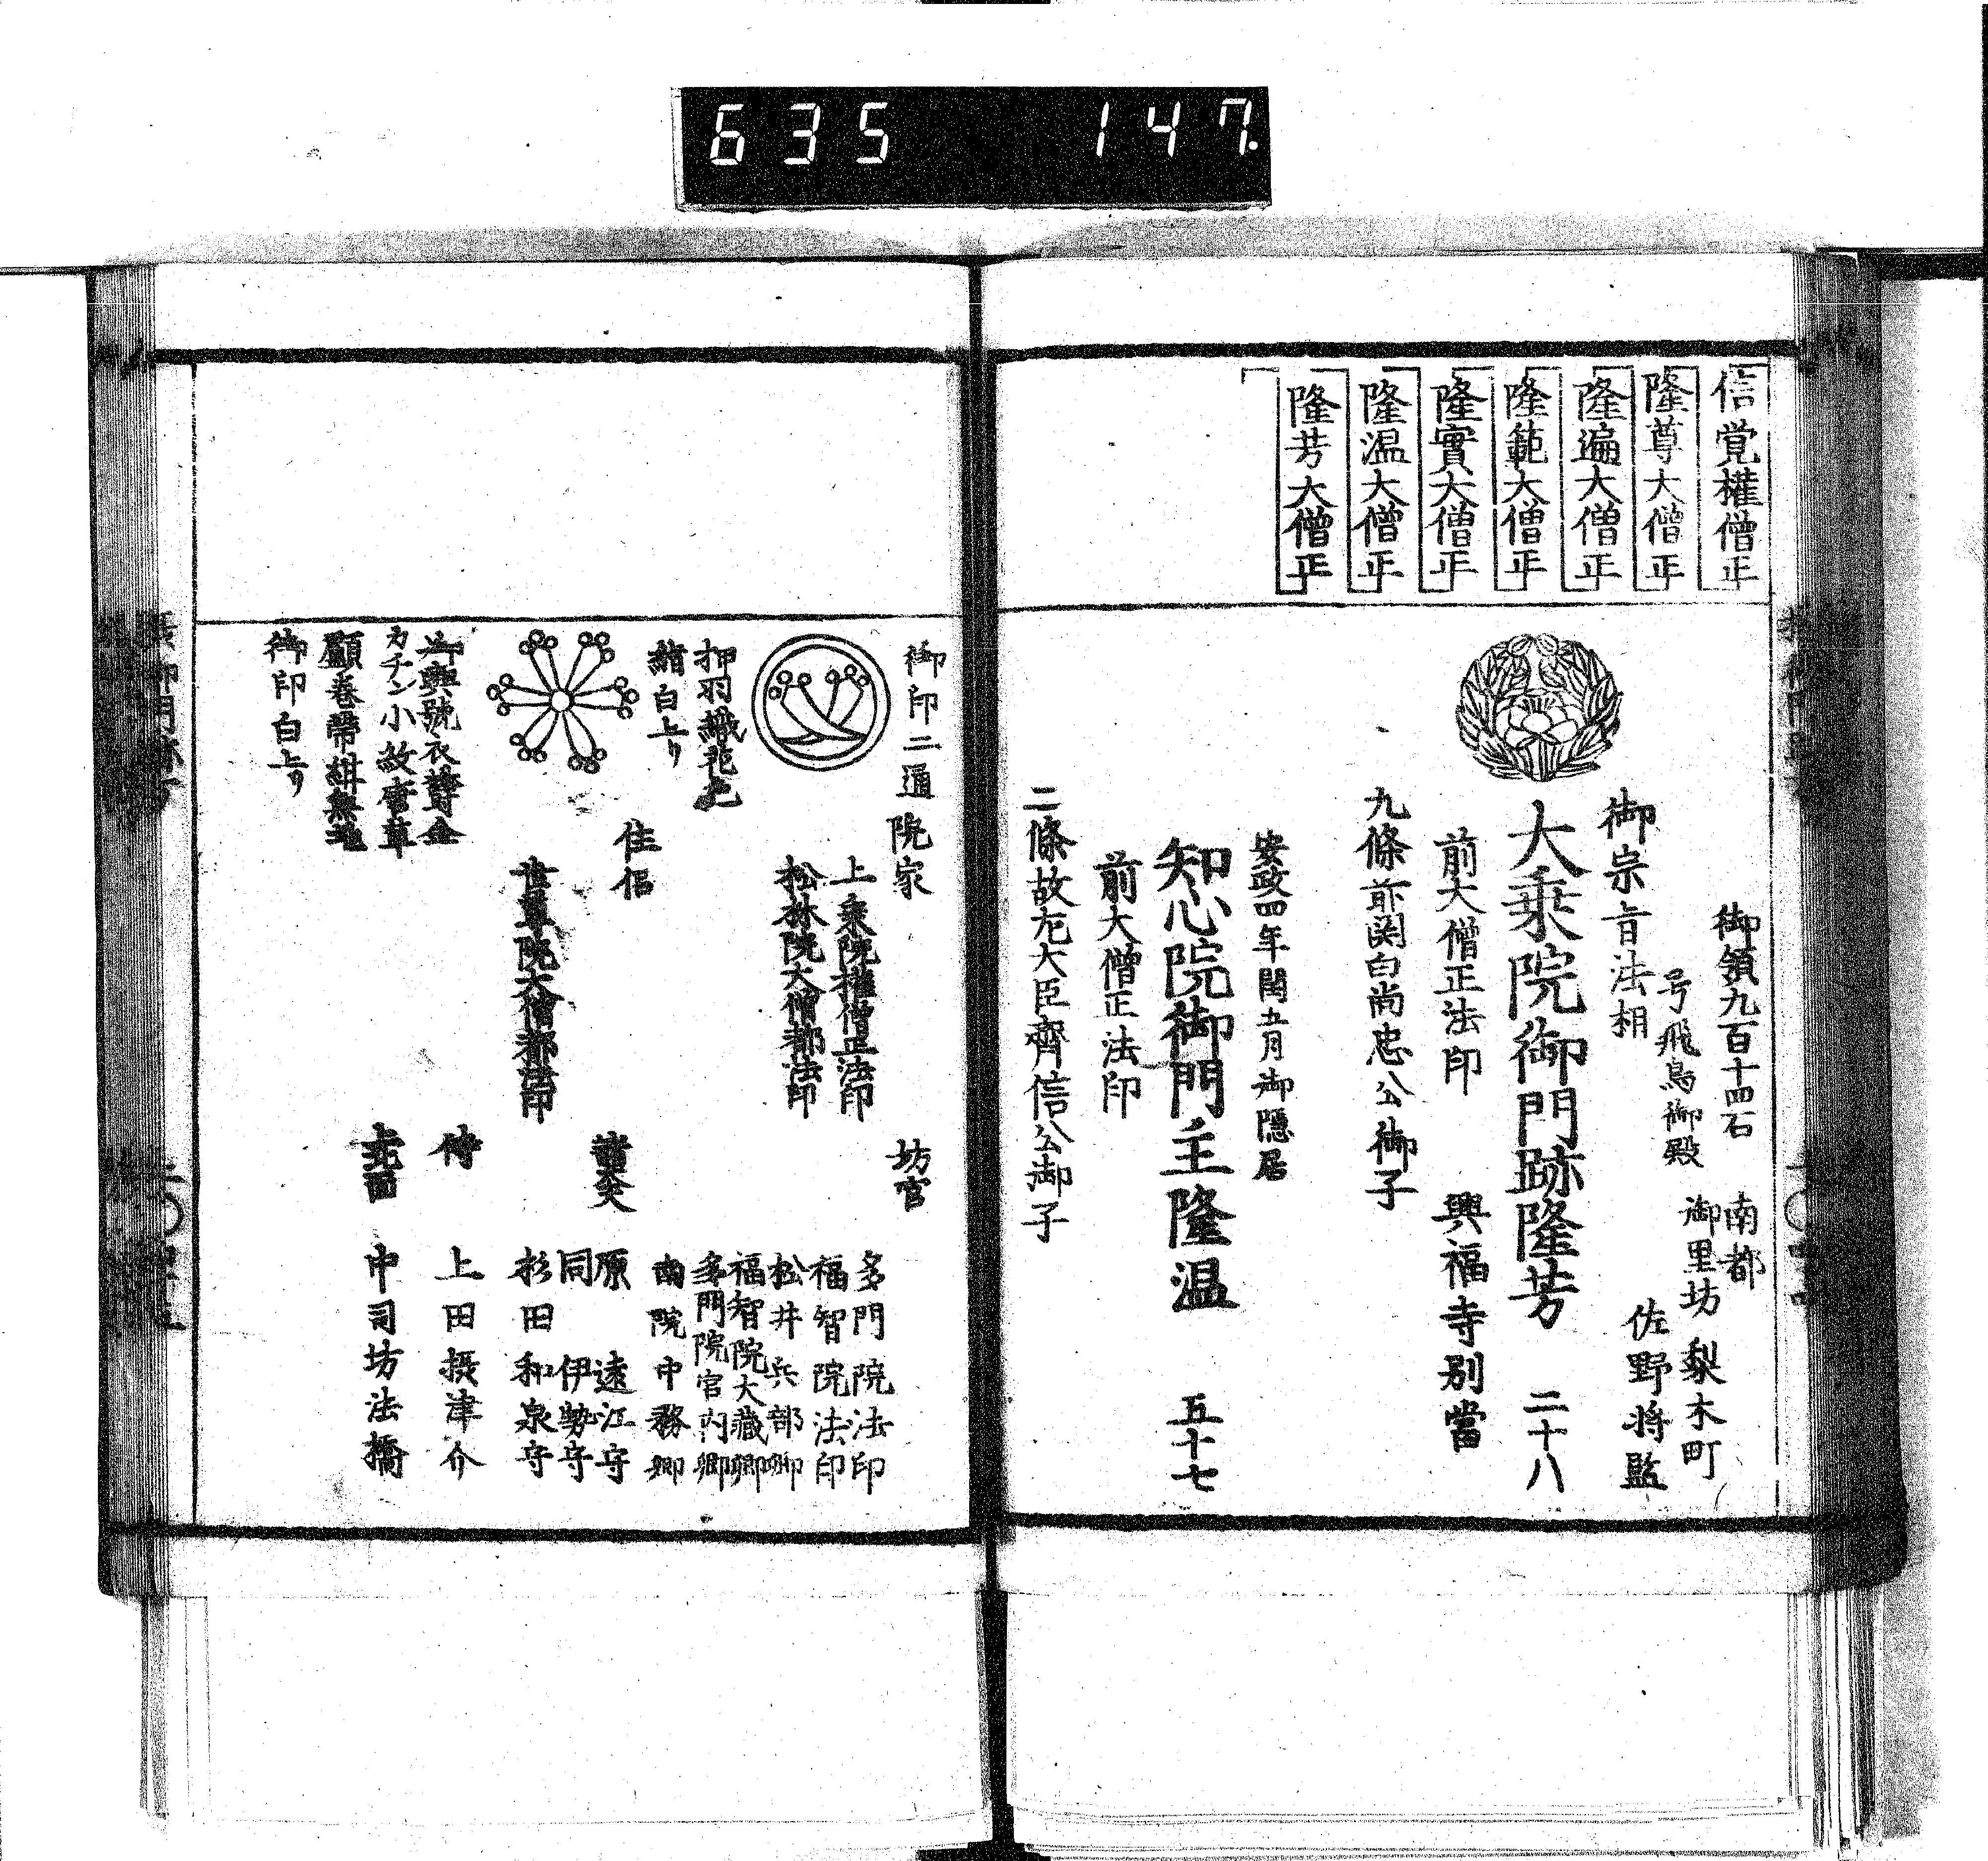 635 147.
信覚權僧正
隆尊大僧正
隆遍大僧正
隆範大僧正
隆實大僧正
隆温大僧正
隆芳大僧正
御領九百十四石
南都
号飛鳥御殿
御里坊 梨木町
佐野将監
御宗旨法相
大乗院御門跡隆芳 二十八
前大僧正法印
興福寺別當
九條前関白尚忠公御子
安政四年閏五月御隠居
知心院御門主隆温 五十七
前大僧正法印
二條故左大臣齊信公御子
御印二通
押羽織花色
紺白上リ
御輿號衣
カチン小
御印白上リ
院家
上乗院權僧正法印
松林院大僧都法印
住侶
院大僧都法印
坊官
多門院法印
福智院法印
松井兵部卿
福智院大蔵卿
多門院宮内卿
南院中務卿
諸大夫
原 遠江守
同 伊勢守
杉田和泉守
侍
上田摂津介
北面
中司坊法橋